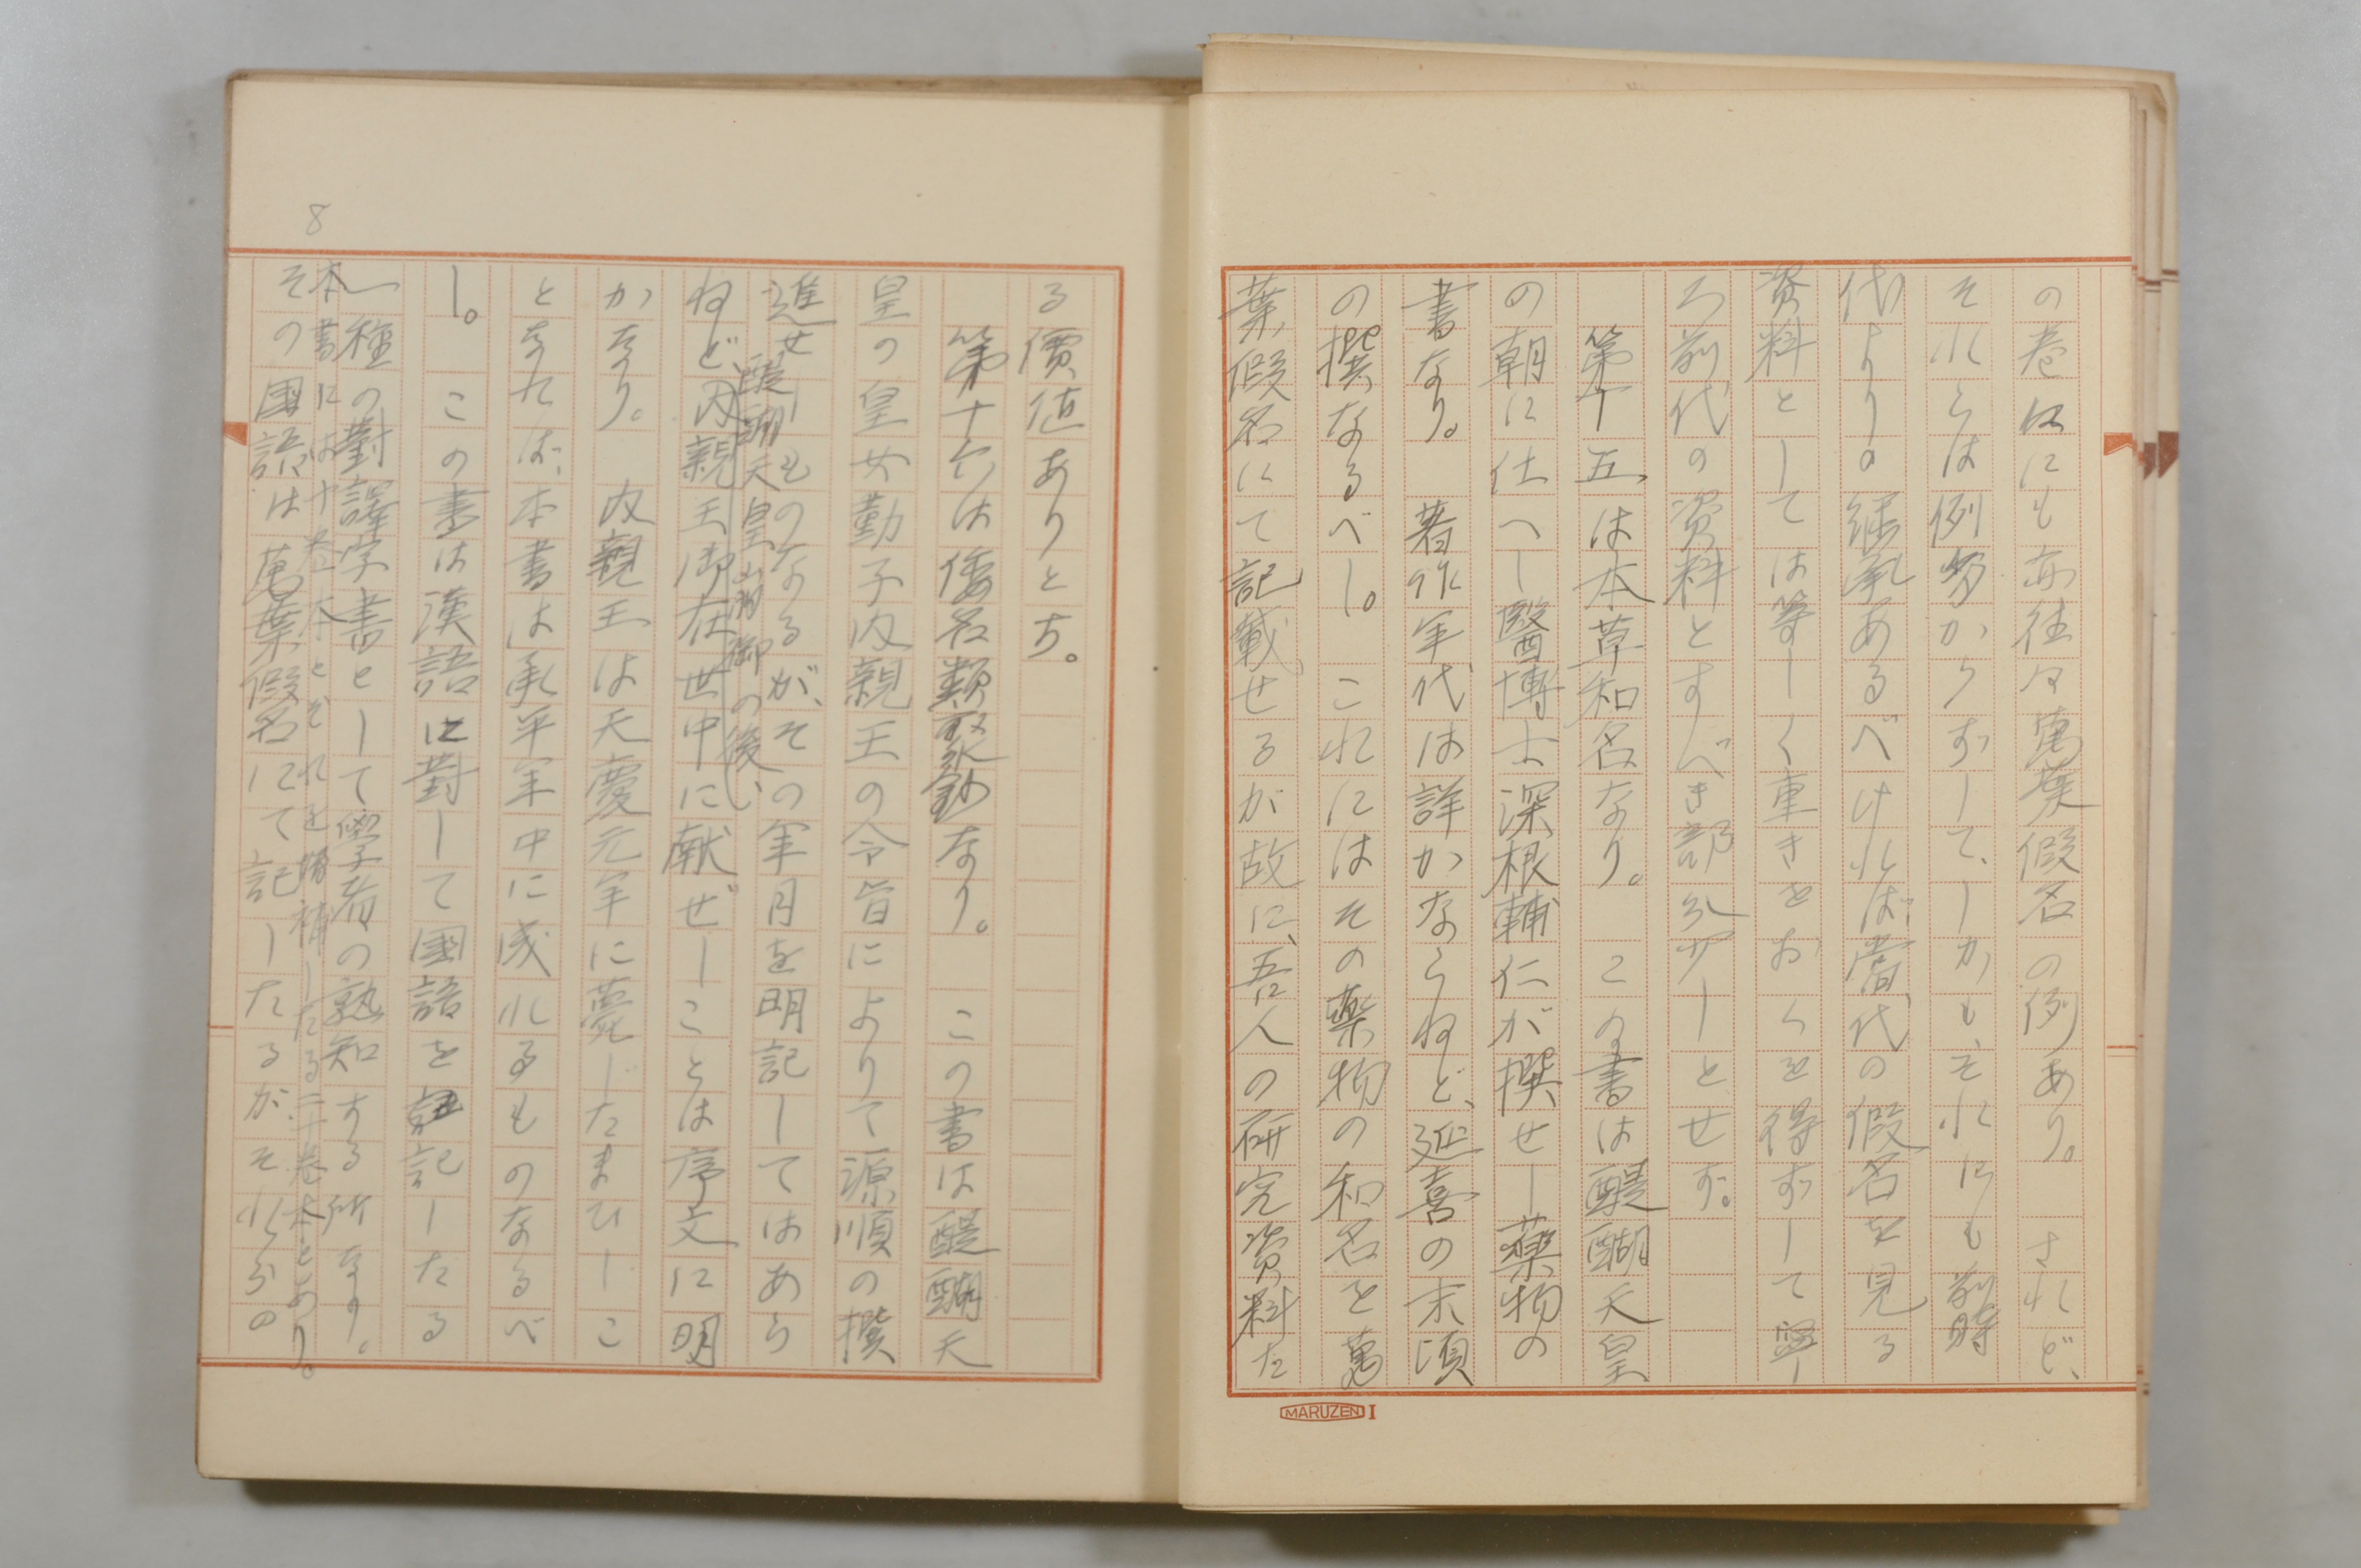 の巻末にも亦往々萬葉假名の例あり。されど、
それらは例多からずして、しかも、それにも前時
代よりの繼承あるべければ、當代の假名を見る
資料としては等しく重きをおくを得ずして寧
ろ前代の資料とすべき部分少しとせず。
第十五は本草和名なり。この書は醍醐天皇
の朝に仕へし醫博士深根輔仁が撰せし藥物の
書なり。著作年代は詳かならねど、延喜の末頃
の撰なるべし。これにはその藥物の和名を萬
葉假名にて記載せるが故に、吾人の研究資料た
MARUZEN I
る價値ありとす。
第十六は倭名類聚鈔なり。この書は醍醐天
皇の皇女勤子内親王の令旨によりて源順の撰
進せしものなるが、その年月を明記してはあら
醍醐天皇崩御の後い
ねど、内親王御在世中に献ぜしことは序文に明
かなり。内親王は天慶元年に薨じたまひしこ
となれば、本書は承平年中に成れるものなるべ
し。この書は漢語に對して國語を記したる
一種の對譯字書として學者の熟知する所なり。
本書には十巻本とそれを増補したる二十巻本とあり。
その國語は萬葉假名にて記したるがそれらの
8